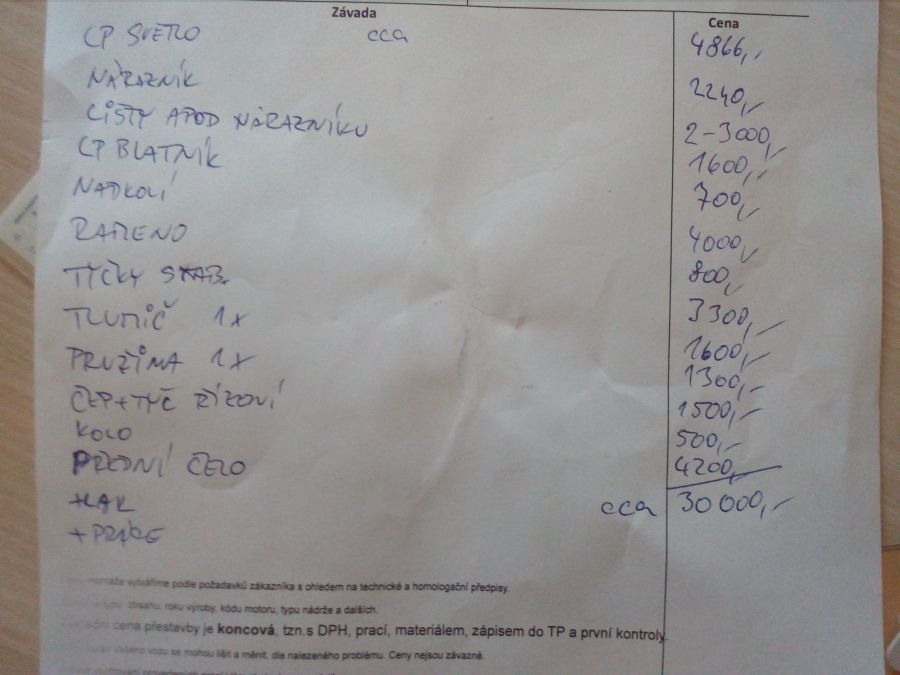 Závada Cena
CP SVETLO cca 4866,-
NÁRAZNÍK 2240,-
LIŠTY A POD NÁRAZNÍKU 2-3000,-
CP BLATNÍK 1600,-
NADKOLÍ 700,-
RAMENO 4000,-
TYČKY STAB. 800,-
TLUMIČ 1x 3300,-
PRUŽINA 1x 1600,-
1300,-
ČEP+TYČ ŘÍZENÍ 1500,-
KOLO 500,-
PŘEDNÍ ČELO 4200,-
+LAK cca 30 000,-
+PRÁCE
montáže vytváříme podle požadavků zákazníka s ohledem na technické a homologační předpisy.
typu, obsahu, roku výroby, kódu motoru, typu nádrže a dalších.
cena přestavby je koncová, tzn.s DPH, prací, materiálem, zápisem do TP a první kontroly.
Vašeho vozu se mohou lišit a měnit, dle nalezeného problému. Ceny nejsou závazné.